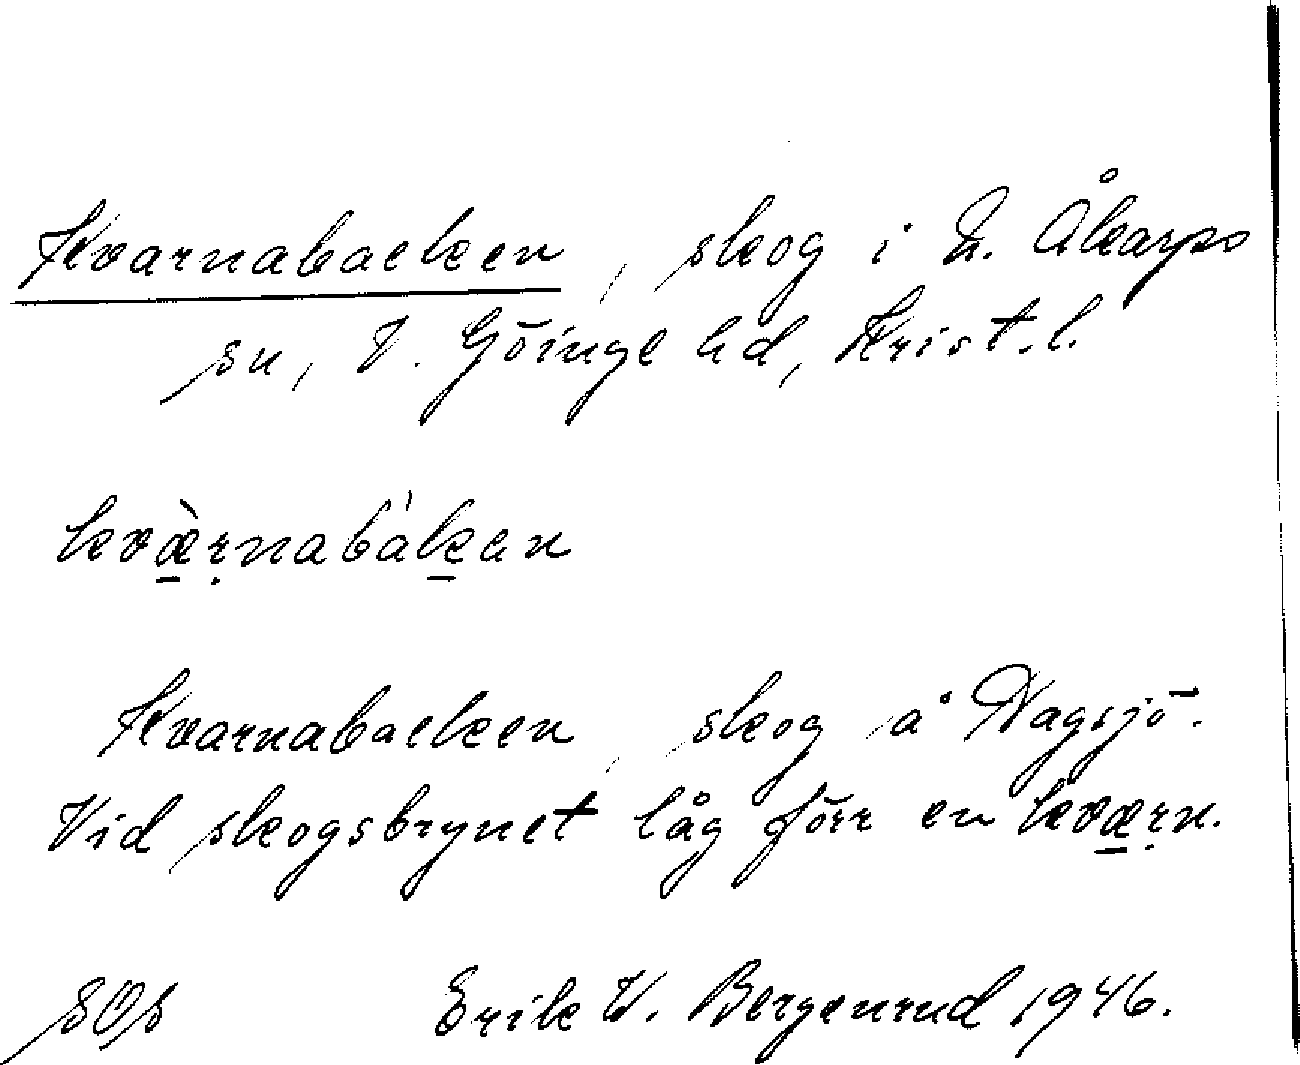 Kvarnabacken, skog i N. Åkarps
sn, V. Göinge hd, Krist. l.
kvæ̱̀ṛnabàḵen
Kvarnabacken, skog å Nagsjö.
Vid skogsbrynet låg förr en kvæ̱ṛn.
SOS Erik W. Bergenrud 1946.